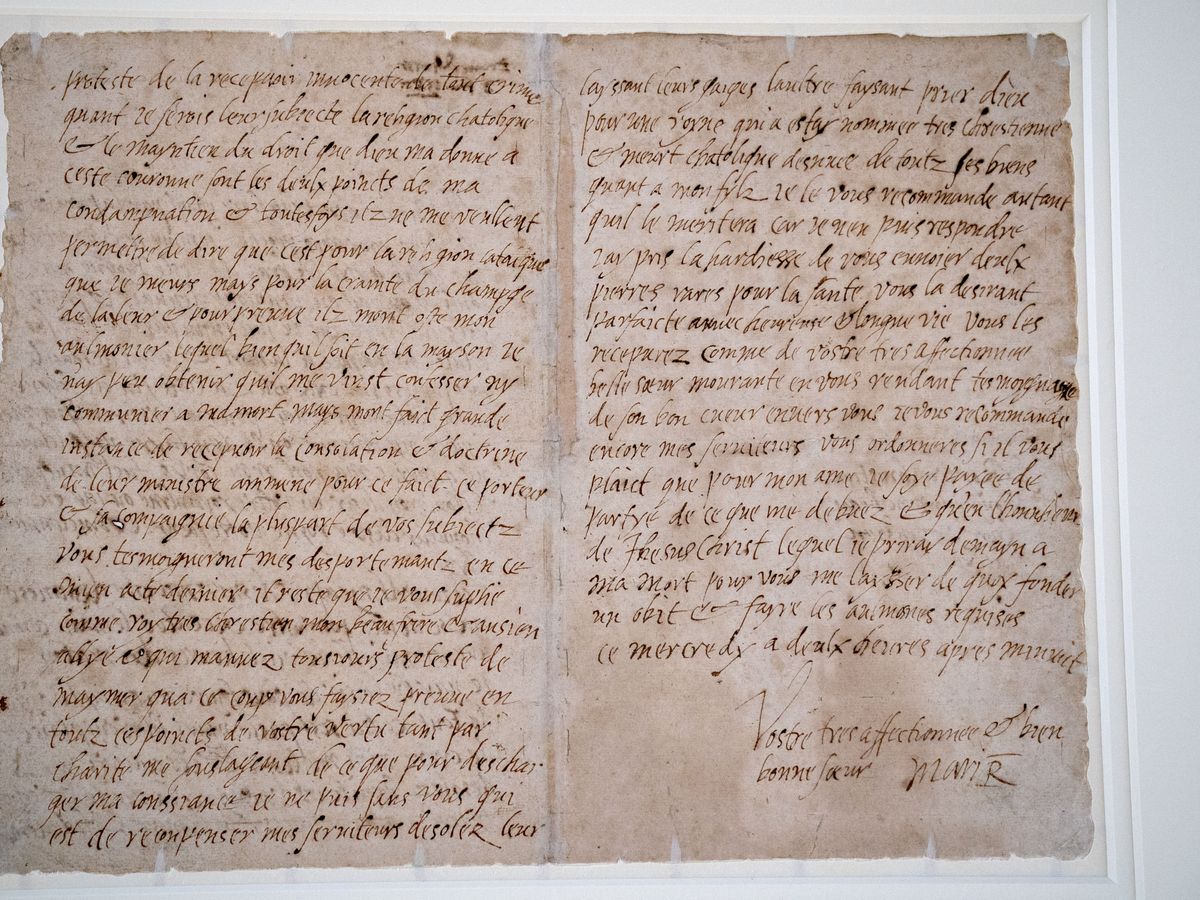 proteste de la recepvoir innocente de tout crime
quant je serois leur subjecte la religion chatolique
& le mayntien du droit que dieu ma donne a
ceste couronne sont les deulx poincts de ma
condampnation & toutesfoys ilz ne me veullent
permettre de dire que cest pour la religion catolique
que je meurs mays pour la crainte du champge
de la leur & pour preuve ilz mont oste mon
aulmonier lequel bien quil soit en la mayson je
nay peu obtenir quil me vinst confesser ny
communier a ma mort mays mont fait grande
instance de recepvoir la consolation & doctrine
de leur ministre ammene pour ce faict ce porteur
& sa compaignie la pluspart de vos subjectz
vous tesmoigneront mes desportemantz en ce
mien acte dernier il reste que je vous suplie
comme roy tres chrestien mon beau frere & ansien
allye & qui mavvez tousjours proteste de
maymer qua ce coup vous faysiez preuve en
toutz ces poincts de vostre vertu tant par
charite me souslageant de ce que pour deschar
ger ma conssiance je ne puis sans vous qui
est de recompenser mes serviteurs desolez leur
layssant leurs gaiges laultre faysant prier dieu
pour une royne qui a estay nommee tres chrestienne
& meurt chatolique desnuee de toutz ses biens
quant a mon fylz je le vous recommande autant
quil le meritera car je nen puis respondre
jay pris la hardiesse de vous envoier deulx
pierres rares pour la sante vous la desirant
parfaicte auvec heureuse & longue vie vous les
recepvrez comme de vostre tres affectionnee
belle sœur mourante en vous rendant tesmoygnage
de son bon cueur envers vous je vous recommande
encore mes serviteurs vous ordonneres si il vous
plaict que pour mon ame je soye payee de
partye de ce que me debvez & quen lhonneur
de Jhesus Christ lequel je priray demayn a
ma mort pour vous me laysser de quoy fonder
un obit & fayre les aulmones requises
ce mercredy a deulx heures apres minuit
Vostre tres affectionnee & bien
bonne sœur Mari R